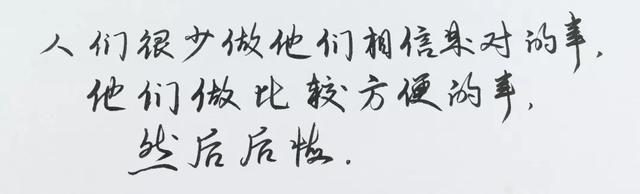 人们很少做他们相信是对的事,
他们做比较方便的事,
然后后悔.